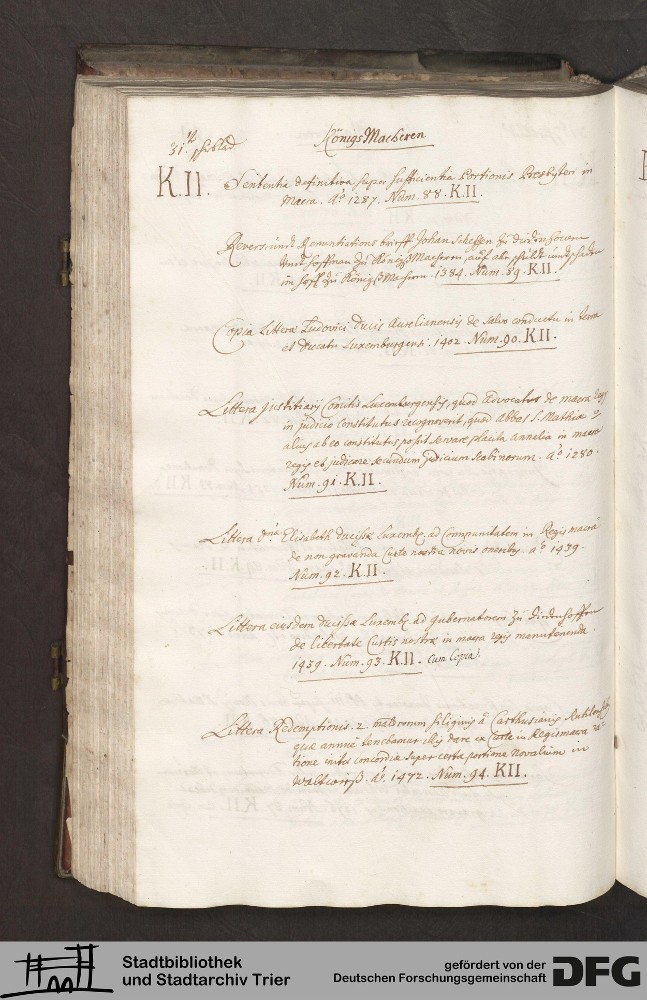 KönigsMacheren
31.te schublad
K.II. Sententia definitiva super sufficientia Portionis Presbyteri in
Macra. Aõ 1287. Num. 88. K.II.
Revers undt Renuntiations brieff Johan Scheffen zu Diedenhoven
undt hoffman zu Königß Macheren, auf alle schuldt undt schaden
im hoff zu Königß Macheren. 1384. Num. 89. K.II.
Copia Litteræ Ludovici Ducis Aurelianensis de salvo conductu in terra
et Ducatu Luxemburgensi. 1402. Num. 90. K.II.
Littera Justitiarij Comitis Luxemburgensis, quod Advocatus de macra Regis
in judicio constitutus recognoverit, quod Abbas S. Mathiæ
alius ab eo constitutus possit servare placita annalia in macra
regis et judicare secundum judicium scabinorum. Aõ 1280.
Num. 91. K.II.
Littera Dnæ Elisabeth ducissæ Luxemb. ad Communitatem in Regis macra
de non gravanda Curte nostra novis oneribus. aõ 1439.
Num. 92. K.II.
Littera eiusdem ducissæ Luxemb. ad gubernatorem zu Diedenhoffen
de libertate Curtis nostræ in macra regis manutenenda.
1439. Num. 93. K.II. cum Copia!
Littera Redemptionis 2. maldrorum siliginis à Carthusianis
quæ annuè tenebamur illis dare ex Curte in Regismacra
tione initæ concordiæ super certa portione Novalium in
Aõ. 1472. Num. 94. K.II.
Stadtbibliothek
und Stadtarchiv Trier
gefördert von der
Deutschen Forschungsgemeinschaft
DFG